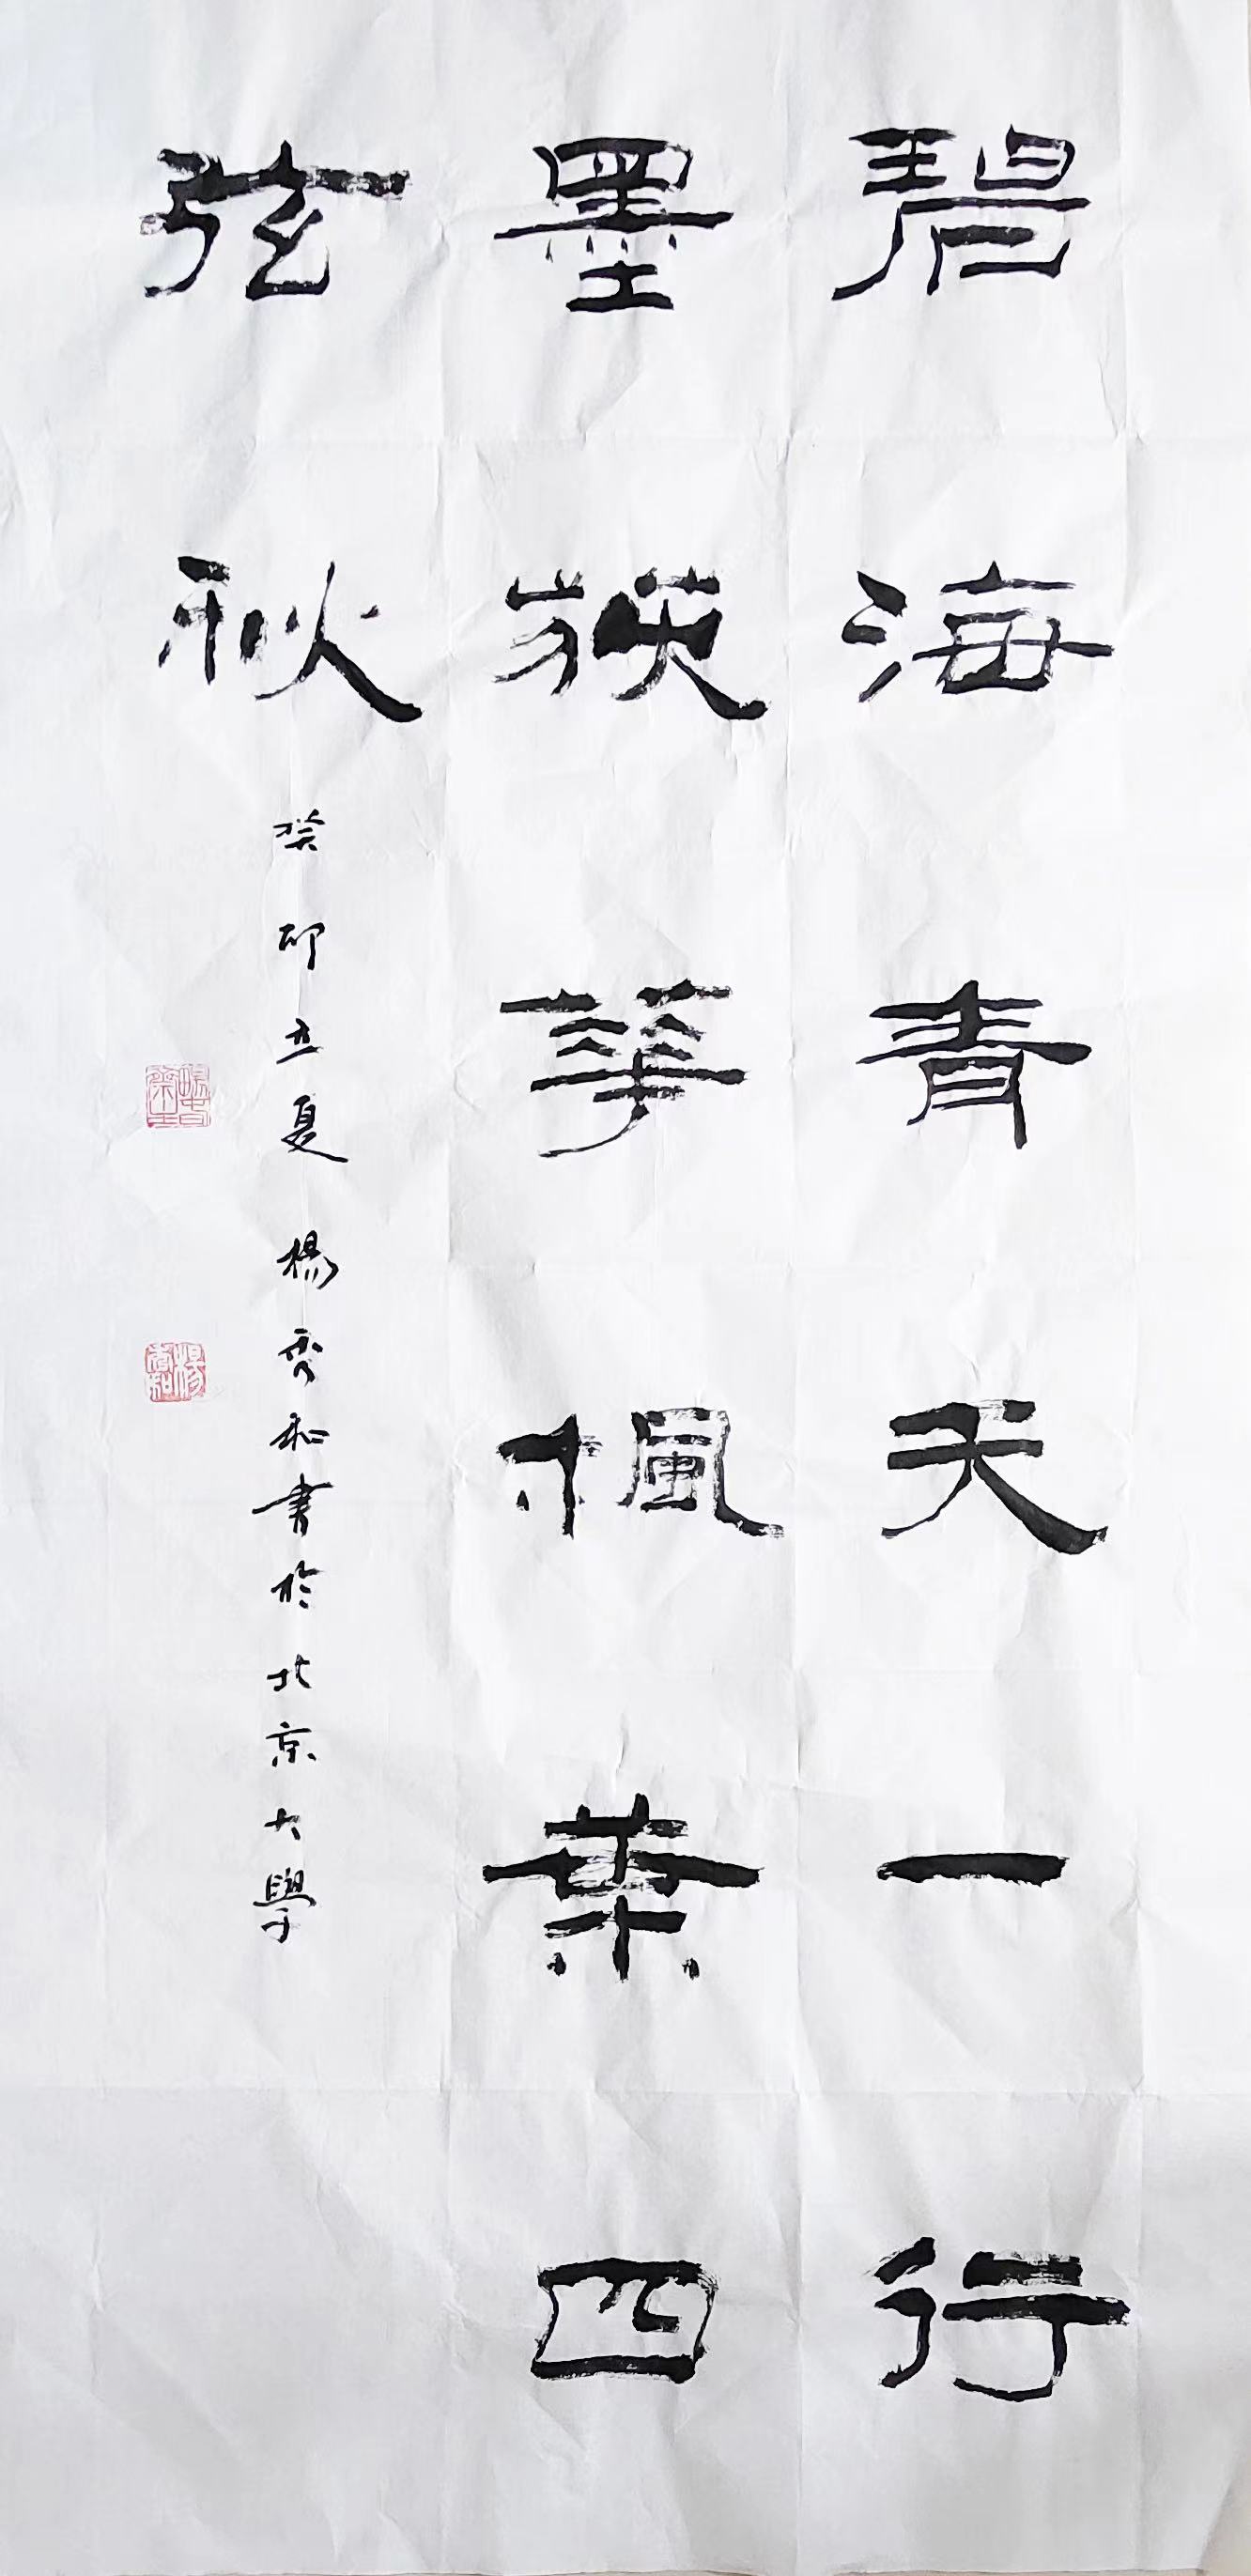 碧海青天一行
墨荻華楓葉四
弦秋
癸卯立夏 楊秀和書於北京大學